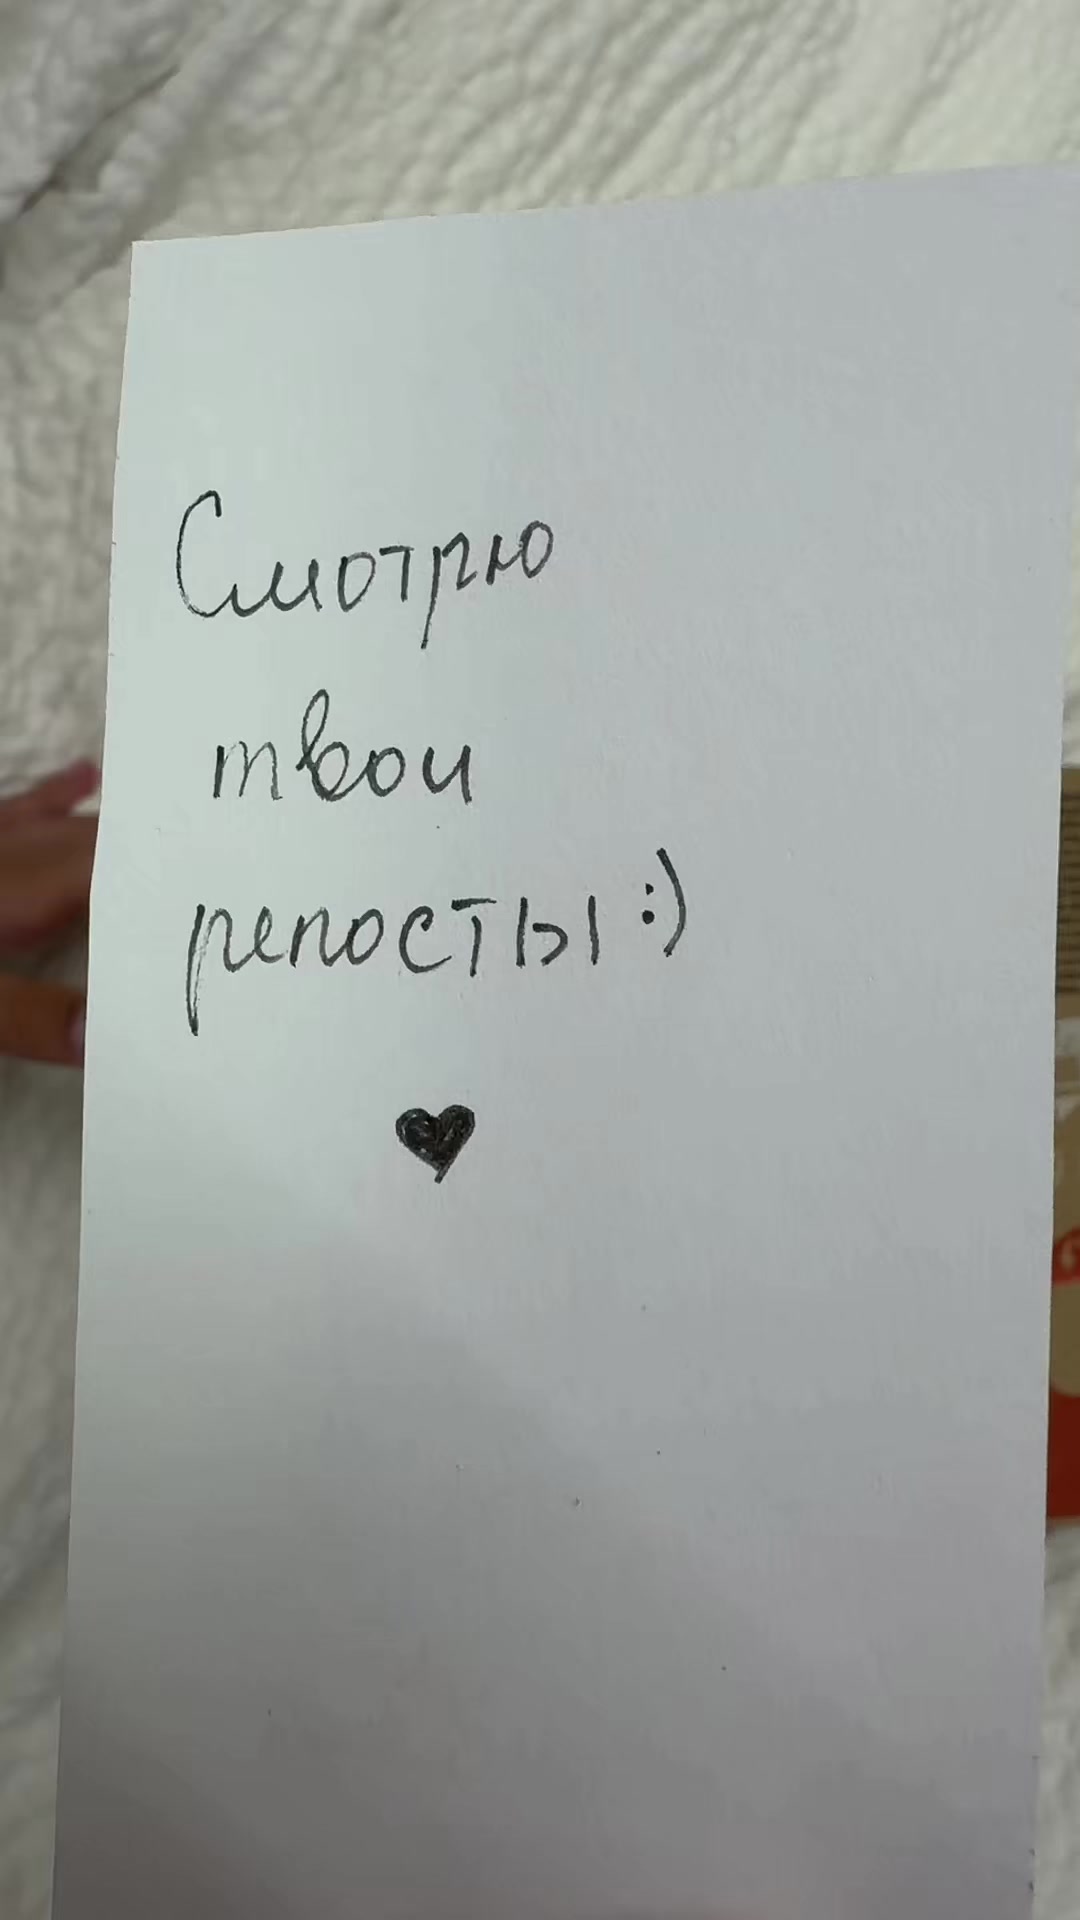 Смотрю
твои
репосты :)
♥